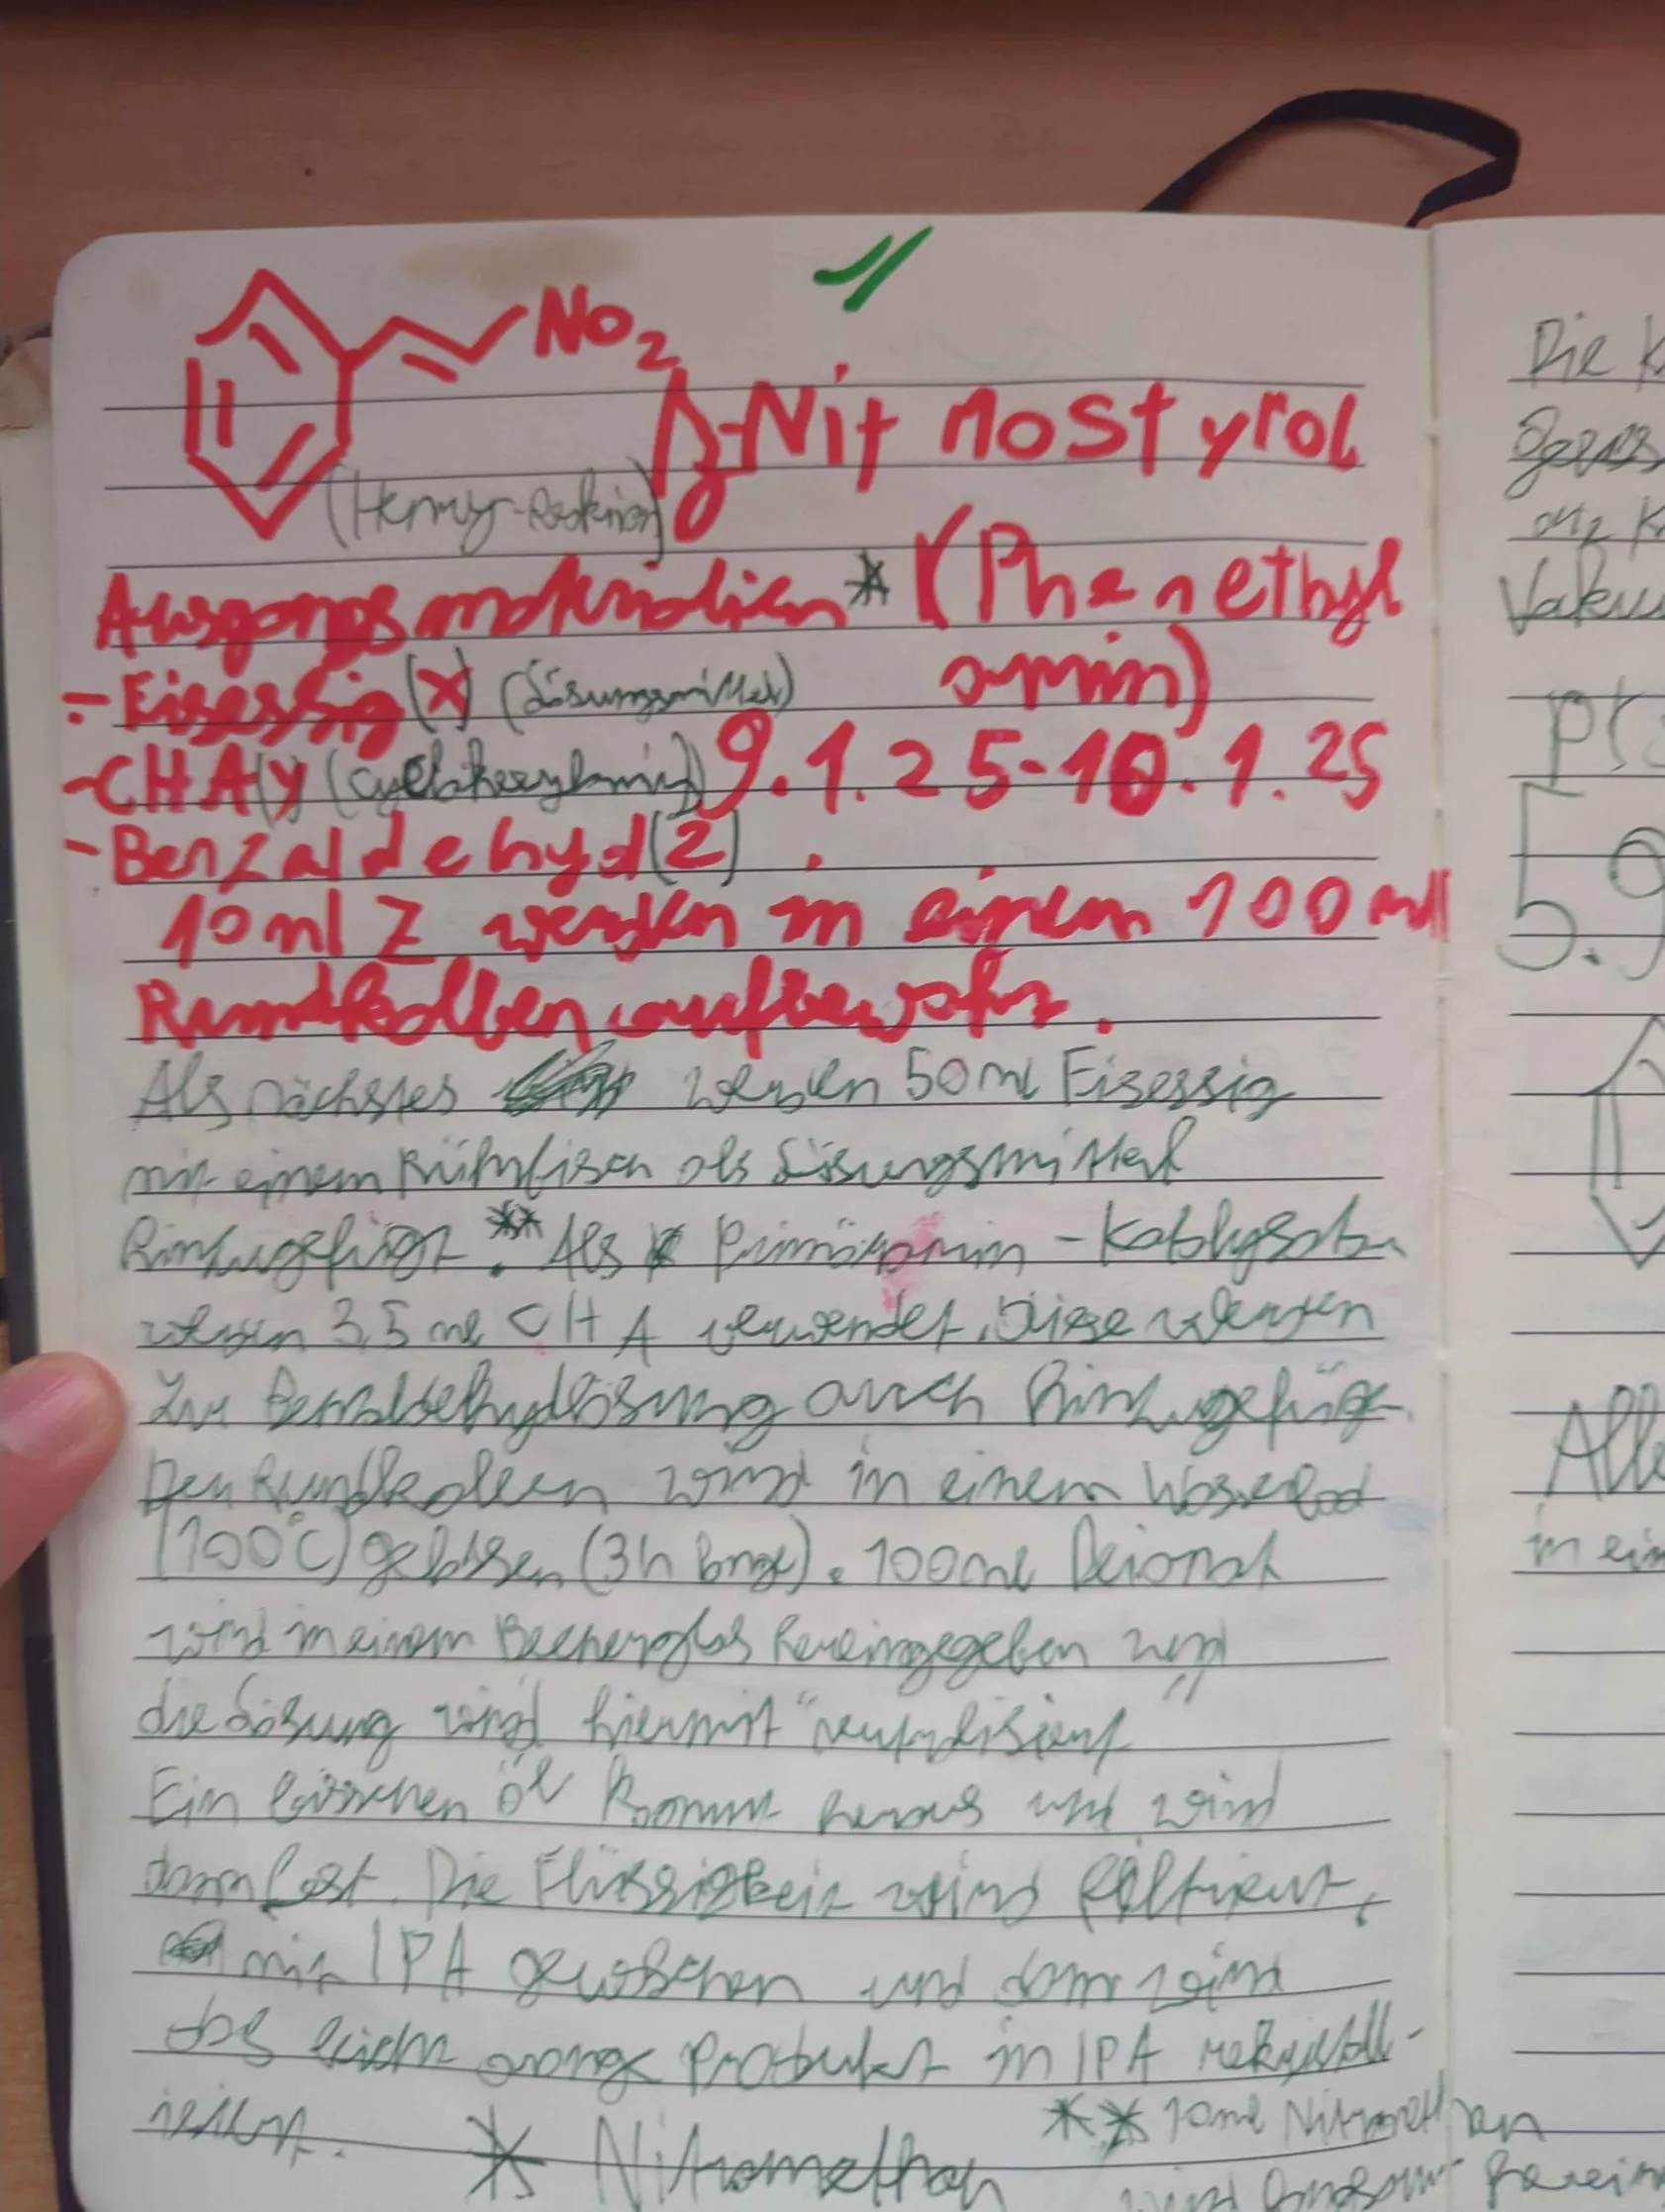 NO2
β-Nitrostyrol
(Henry-Reaktion)
Ausgangsmaterialien* (Phenethyl
amin)
- Eisessig (X) (Lösungsmittel)
- CHA (Y) (Cyclohexylamin) 9.1.25-10.1.25
- Benzaldehyd (Z)
10 ml Z werden in einem 100 ml
Rundkolben aufbewahrt.
Als nächstes werden 50 ml Eisessig
mit einem Rührfisch als Lösungsmittel
hinzugefügt.** Als Primäramin-Katalysator
werden 3,5 ml CHA verwendet. Diese werden
zur Benzaldehydlösung auch hinzugefügt.
Den Rundkolben wird in einem Wasserbad
(100°C) gelassen (3h lang). 100 ml Deionat
wird in einem Becherglas hereingegeben und
die Lösung wird hiermit "neutralisiert"
Ein bisschen Öl kommt heraus und wird
dann fest. Die Flüssigkeit wird filtriert,
mit IPA gewaschen und dann wird
das leicht orange Produkt in IPA rekristall-
isiert.
* Nitromethan
** 10ml Nitromethan
wird
Die
Vakuu
5.9
Alle
in ein